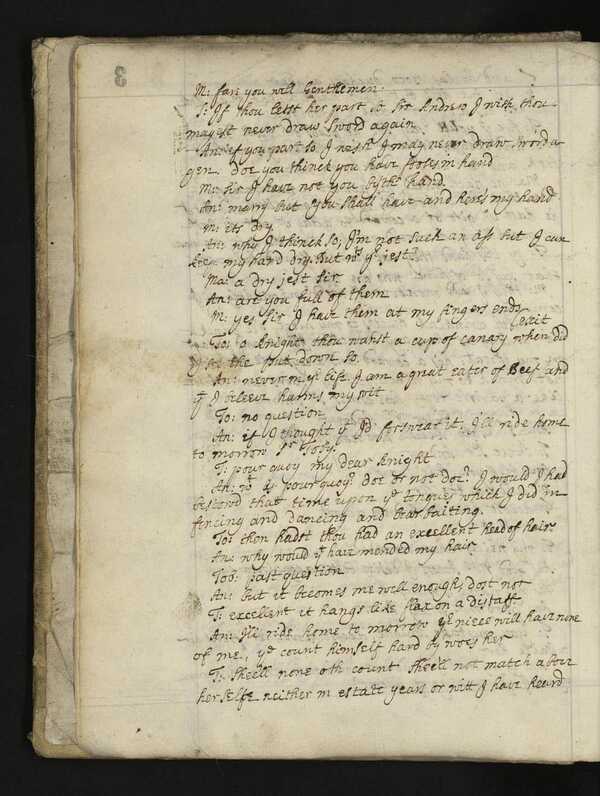 3
M: fare you well Gentlemen
T: If thou letst her part so Sir Andrew I wish thou
mayst never draw sword again
An: if you part so I wish I may never draw sword a
gen. Doe you thinck you have fooles in hand
M: Sir I have not you by th hand.
An: marry but you shall have and heres my hand
M: its dry
An: why I thinck so, I'm not such an ass but I can
keep my hand dry. But wt ys yr jest?
Ma: a dry jest Sir.
An: are you full of them
M: yes Sir I have them at my fingers ends
exit
To: o knight thou wantst a cup of canary when did
I see thee put down so.
An: never in yr life I am a great eater of Beef and
I beleeve harms my wit
To: no question
An: if I thought yt I'd forswear it, I'll ride home
to morrow Sr Toby.
T: pourquoy my dear knight
An: wt ys pourquoy? doe or not doe? I would I had
bestowd that time upon ye tongues which I did in
fencing and dancing and bear baiting.
To: then hadst thou had an excellent head of hair
An: why would yt have mended my hair
Tob: past question
An: but it becomes me well enough, dost not
T: excellent it hangs like flax on a distaff
An: I'll ride home to morrow yr niece will have none
of me, ye count himself hard by woes her
T: Sheell none oth count shee'll not match above
her selfe neither in estate years or witt I have heard